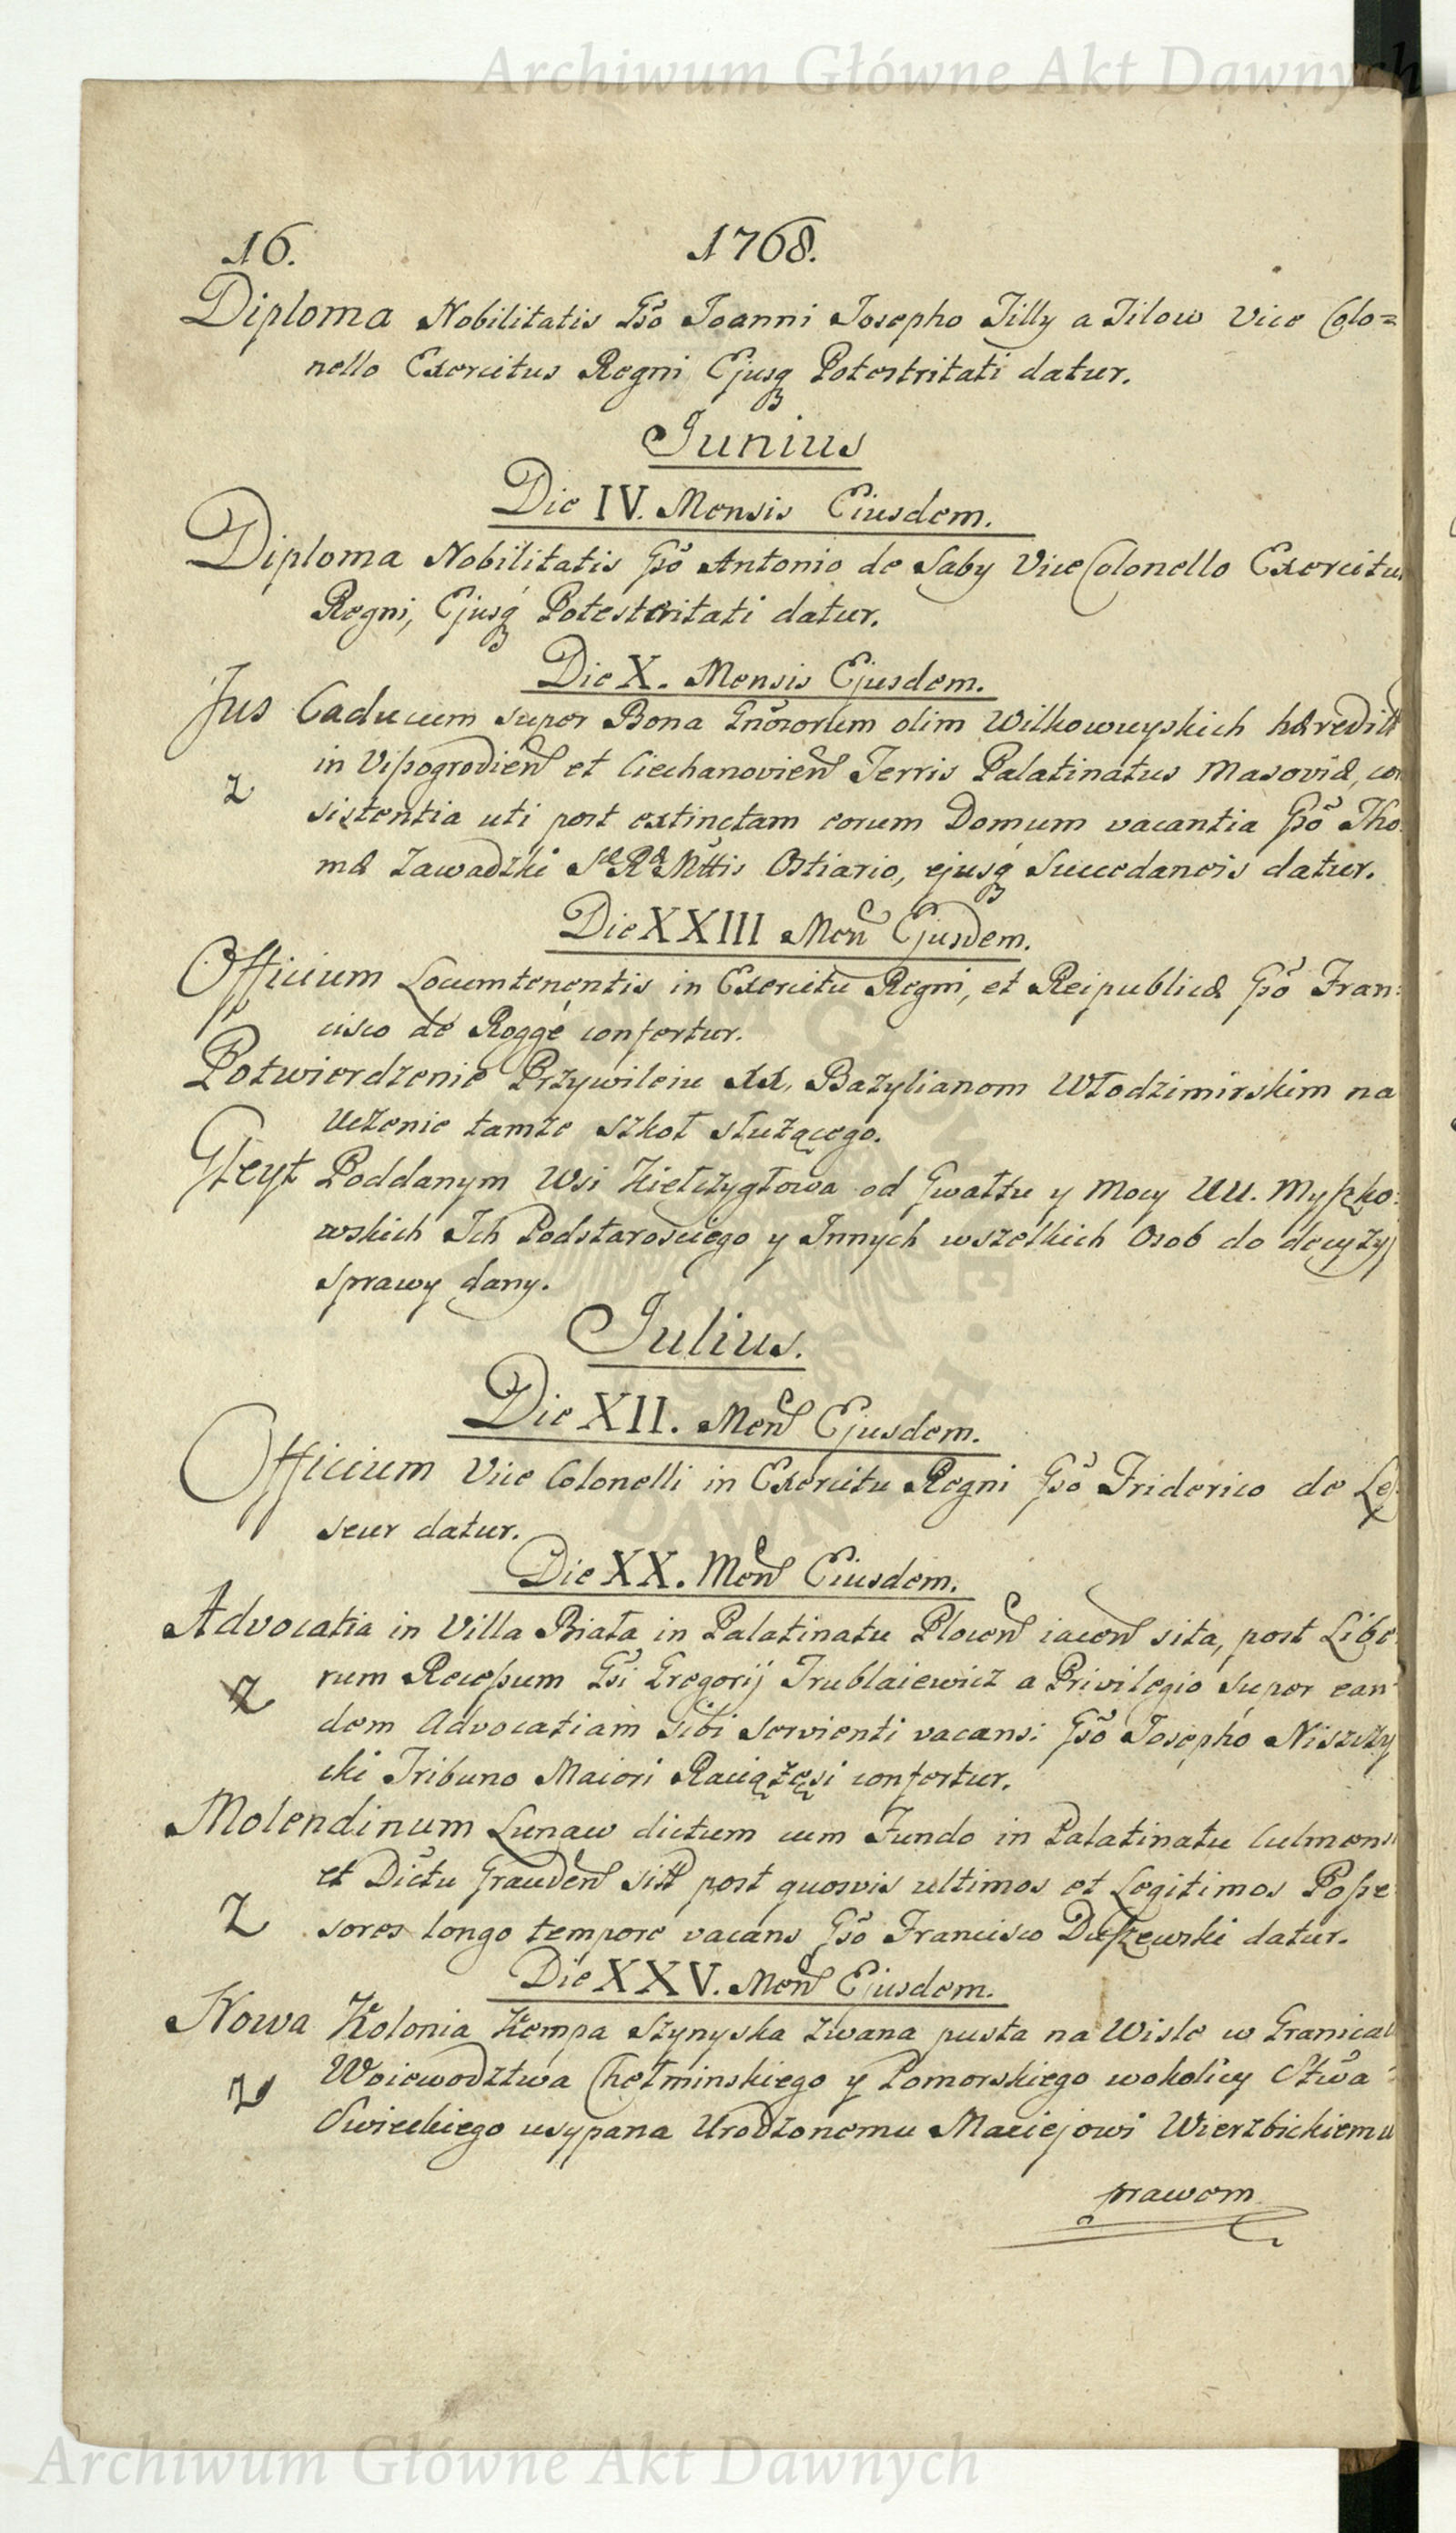 Archiwum Główne Akt Dawnych
16. 1768.
Diploma Nobilitatis Gso Joanni Josepho Tilly a Tilow Vice Colo=
nello Exercitus Regni Ejusq Potestritati datur.
Junius
Die IV. Mensis Eiusdem.
Diploma Nobilitatis Gso Antonio de Saby Vice Colonello Exercitus
Regni, Ejusq Potesteritati datur.
Die X. Mensis Ejusdem.
Jus Caducum super Bona Gnosorum olim Wilkowuyskich hæredit
in Vißogrodien et Ciechanovien Terris Palatinatus Masoviæ, con
sistentia uti post extinctam eorum Domum vacantia Gso Tho
mæ Zawadzki Sæ Ræ Mttis Ostiario, ejusq Succedaneis datur.
Die XXIII Men Ejusdem.
Officium Locumtenentis in Exercitu Regni, et Reipublicæ Gso Fran:
cisco de Rogge confertur.
Potwierdzenie Przywileiu XX. Bazylianom Włodzimirskim na
Uczenie tamze szkoł służącego.
Gleyt Poddanym Wsi Kiełczygłowa od Gwałtu y Mocy UU. Myszko:
wskich Ich Podstarosciego y Innych wszelkich Osob do decyzyi
sprawy dany.
Julius.
Die XII. Men Ejusdem.
Officium Vice Colonelli in Exercitu Regni Gso Friderico de Le
seur datur.
Die XX. Men Eiusdem.
Advocatia in Villa Biała in Palatinatu Plocen iacen sita, post Libe
rum Recessum Gsi Gregorij Trublaiewicz a Privilegio super ean
dem Advocatiam sibi servienti vacans: Gso Josepho Niszczy
cki Tribuno Maiori Raciążęsi confertur.
Molendinum Lunaw dictum cum Fundo in Palatinatu Culmens
et Dictu Grauden sitt post quosvis ultimos et Legitimos Posse
sores longo tempore vacans Gso Francisco Duszewski datur.
Die XXV. Men Ejusdem.
Nowa Kolonia Kempa Szynyska zwana pusta na Wisle w Granicah
Woiewodztwa Chełminskiego y Pomorskiego wokolicy Stwa
Swieckiego usypana Urodzonemu Maciejowi Wierzbickiemu
prawem
Archiwum Główne Akt Dawnych